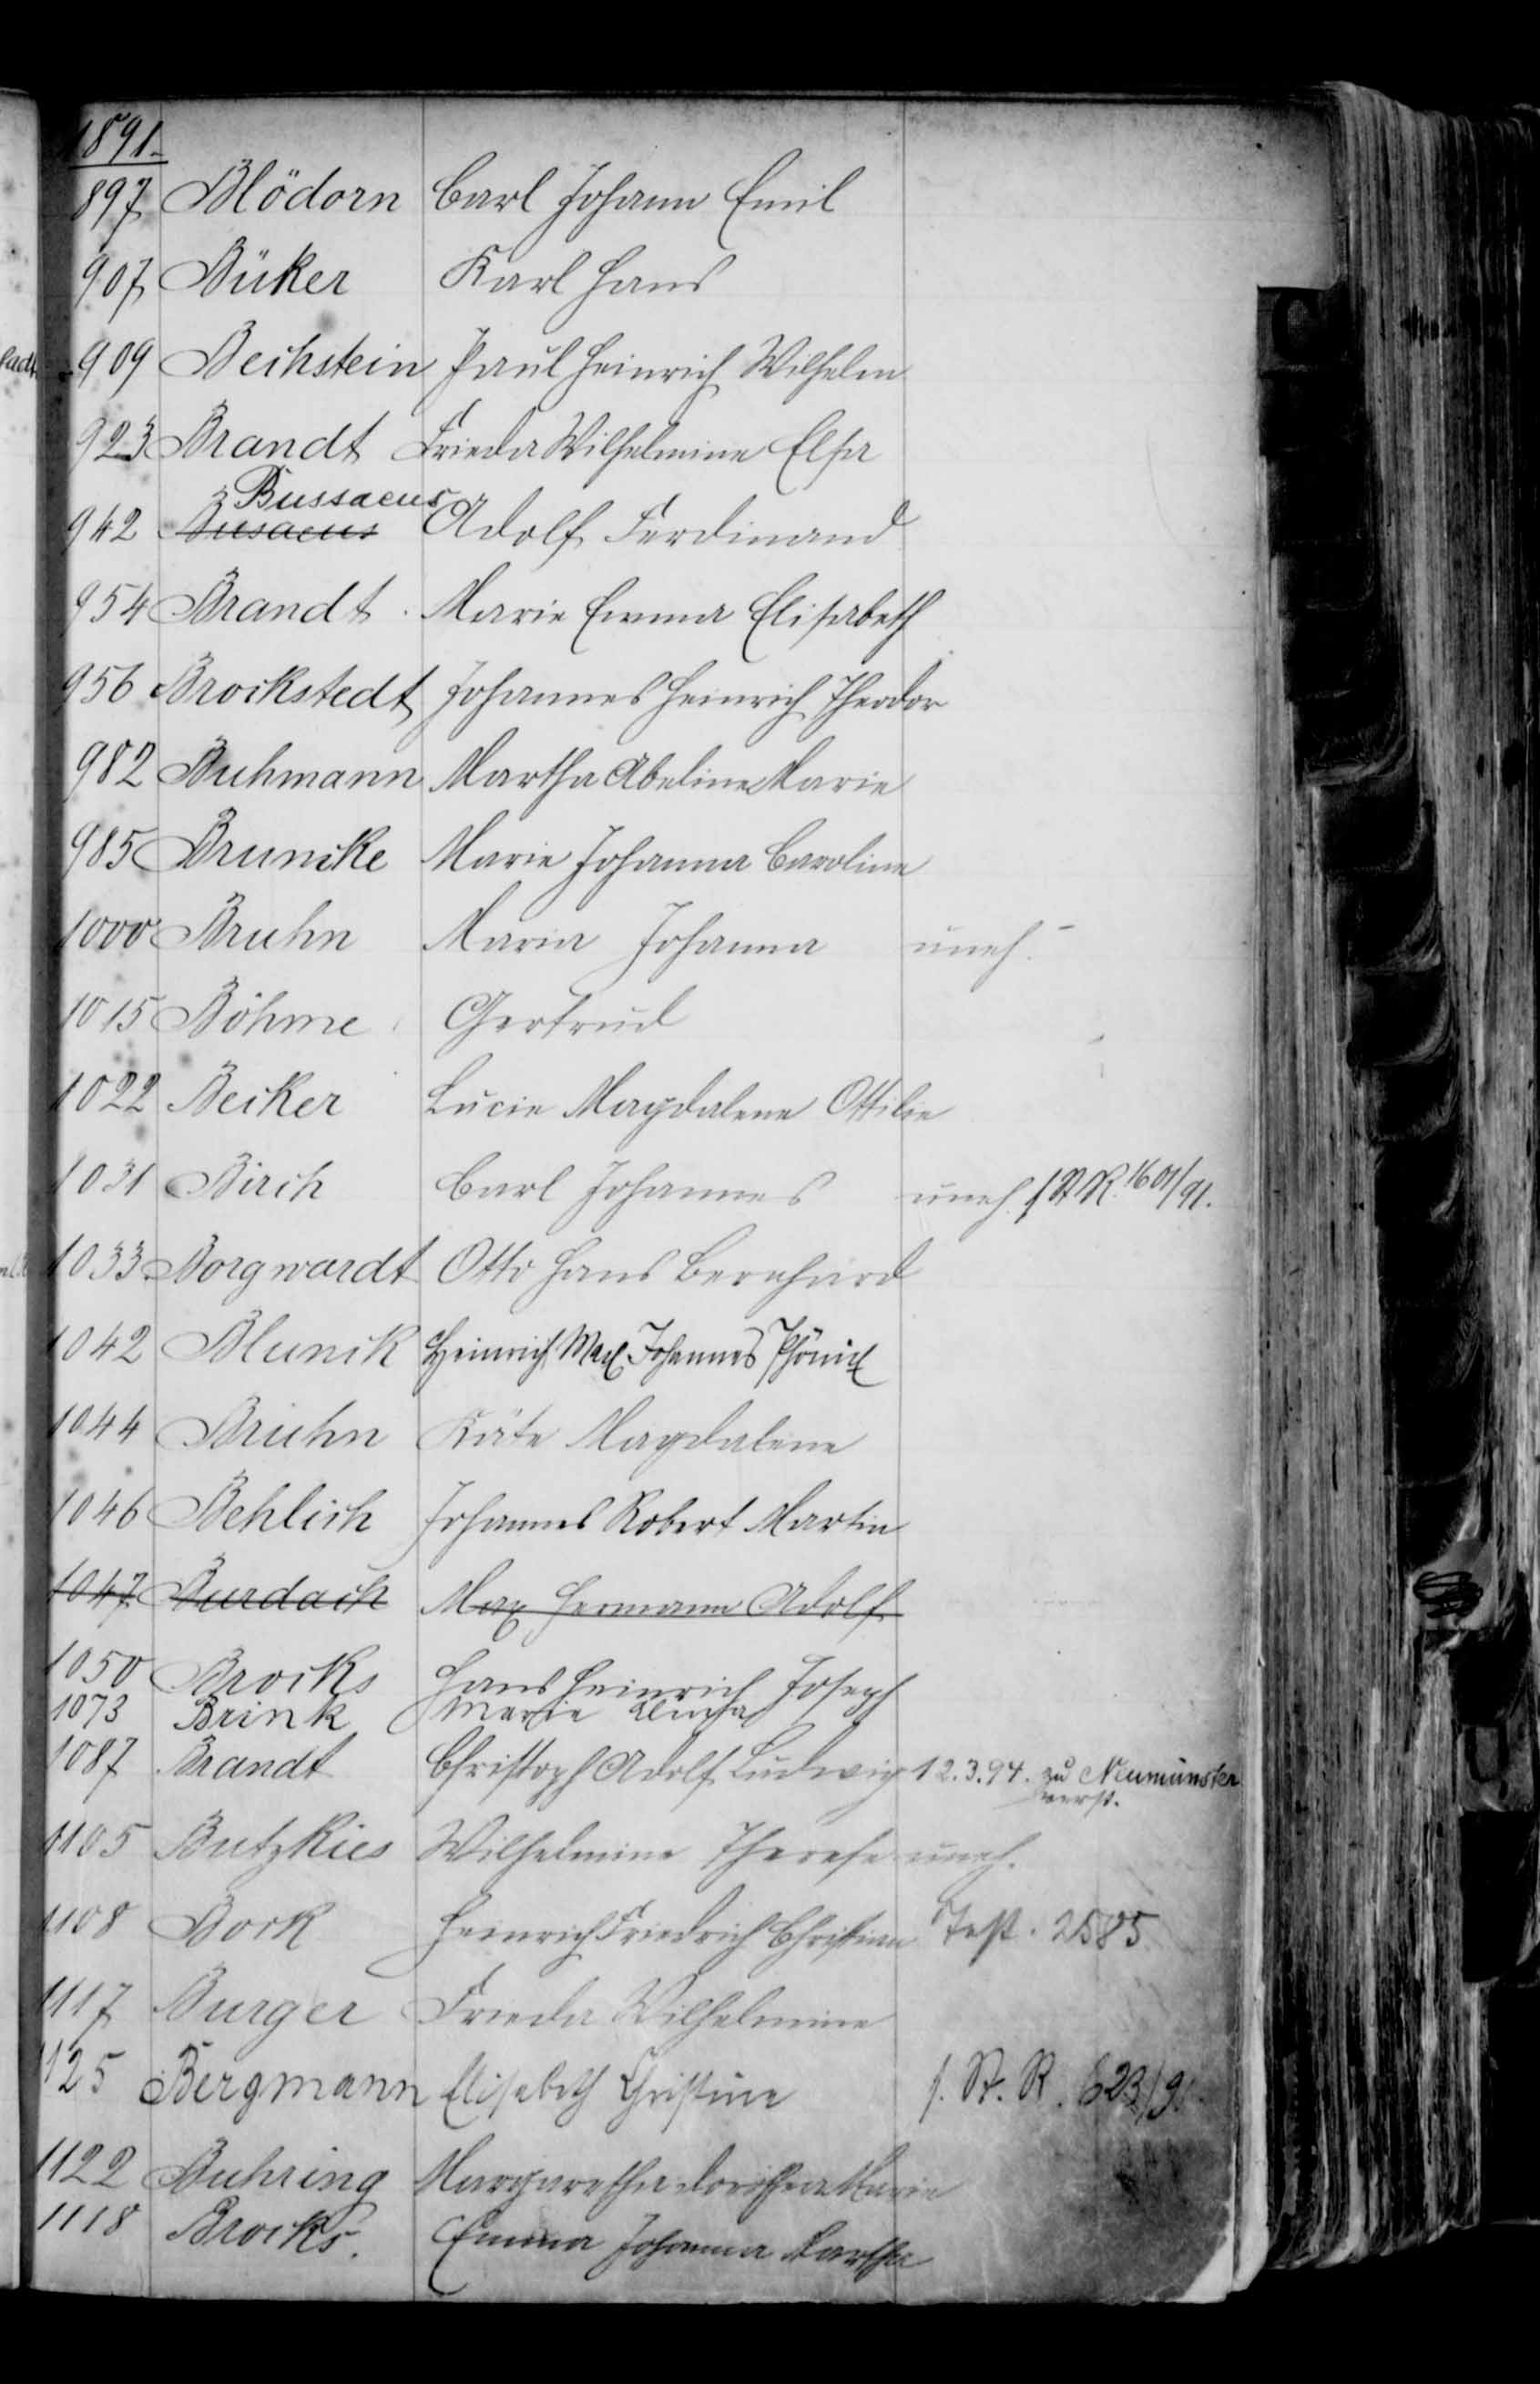 1891.
897 Blödorn Carl Johann Emil
907 Büker Karl Hans
909 Bechstein Paul Heinrich Wilhelm
923 Brandt Frieda Wilhelmine Elsa
Bussaeus
942 Busaeus Adolf Ferdinand
954 Brandt Marie Emma Elisabeth
956 Brockstedt Johannes Heinrich Theodor
982 Buhmann Martha Abeline Marie
985 Bruncke Marie Johanna Caroline
1000 Bruhn Maria Johanna uneh.
1015 Böhme Gertrud
1022 Becker Lucie Magdalene Ottilie
1031 Birch Carl Johannes uneh. f. St. R. 1601/91.
1033 Borgwardt Otto Hans Bernhard
1042 Blunck Heinrich Max Johannes Phönix
1044 Bruhn Käte Magdalene
1046 Behlich Johannes Robert Martin
1047 Burdach Max Hermann Adolf
1050 Brocks Hans Heinrich Joseph
1073 Brink Marie
1087 Brandt Christoph Adolf Ludwig 12.3.94. zu Neumünster
verst.
1105 Butzkies Wilhelmine Therese uneh.
1108 Bock Heinrich Friedrich Christian Test. 2585
1117 Burger Frieda Wilhelmine
1125 Bergmann Elisabeth Christine f. St. R.
1122 Buhring Margaretha Dorothea Marie
1118 Brocks. Emma Johanna Martha